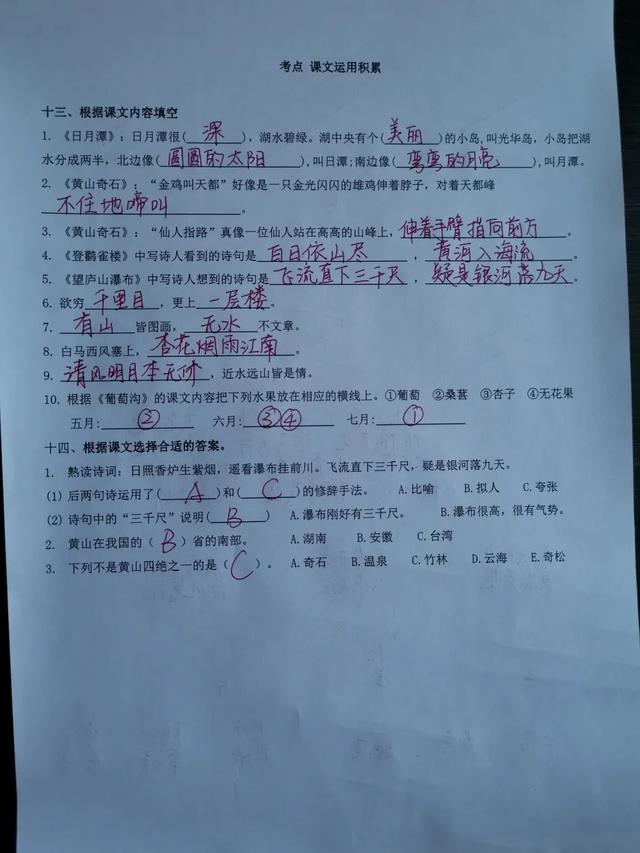 考点 课文运用积累
十三、根据课文内容填空
1. 《日月潭》：日月潭很(深)，湖水碧绿。湖中央有个(美丽)的小岛,叫光华岛，小岛把湖
水分成两半，北边像(圆圆的太阳),叫日潭;南边像(弯弯的月亮),叫月潭。
2. 《黄山奇石》：“金鸡叫天都”好像是一只金光闪闪的雄鸡伸着脖子，对着天都峰
不住地啼叫。
3. 《黄山奇石》：“仙人指路”真像一位仙人站在高高的山峰上，伸着手臂指向前方。
4. 《登鹳雀楼》中写诗人看到的诗句是白日依山尽，黄河入海流。
5. 《望庐山瀑布》中写诗人想到的诗句是飞流直下三千尺，疑是银河落九天。
6. 欲穷千里目，更上一层楼。
7. 有山皆图画，无水不文章。
8. 白马西风塞上，杏花烟雨江南。
9. 清风明月本无价，近水远山皆是情。
10. 根据《葡萄沟》的课文内容把下列水果放在相应的横线上。①葡萄 ②桑葚 ③杏子 ④无花果
五月：② 六月：③④ 七月：①
十四、根据课文选择合适的答案。
1. 熟读诗词：日照香炉生紫烟，遥看瀑布挂前川。飞流直下三千尺，疑是银河落九天。
(1) 后两句诗运用了(A)和(C)的修辞手法。 A.比喻 B.拟人 C.夸张
(2) 诗句中的“三千尺”说明(B) A.瀑布刚好有三千尺。 B.瀑布很高，很有气势。
2. 黄山在我国的（B）省的南部。 A.湖南 B.安徽 C.台湾
3. 下列不是黄山四绝之一的是（C）。 A.奇石 B.温泉 C.竹林 D.云海 E.奇松